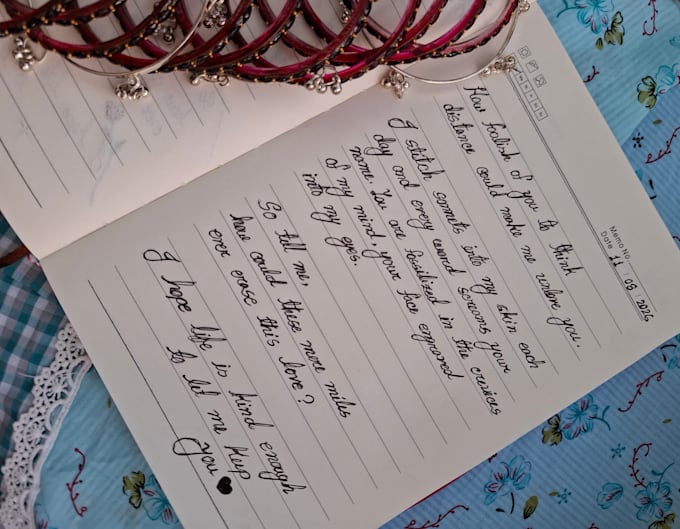 Memo No.
Date 11 / 09 / 2025
How foolish of you to think
distance could make me unlove you.
I stitch sonnets into my skin each
day and every word screams your
name. You are fossilized in the crevices
of my mind, your face engraved
into my eyes.
So tell me,
how could these mere miles
ever erase this love?
I hope life is kind enough
to let me keep
you ♥